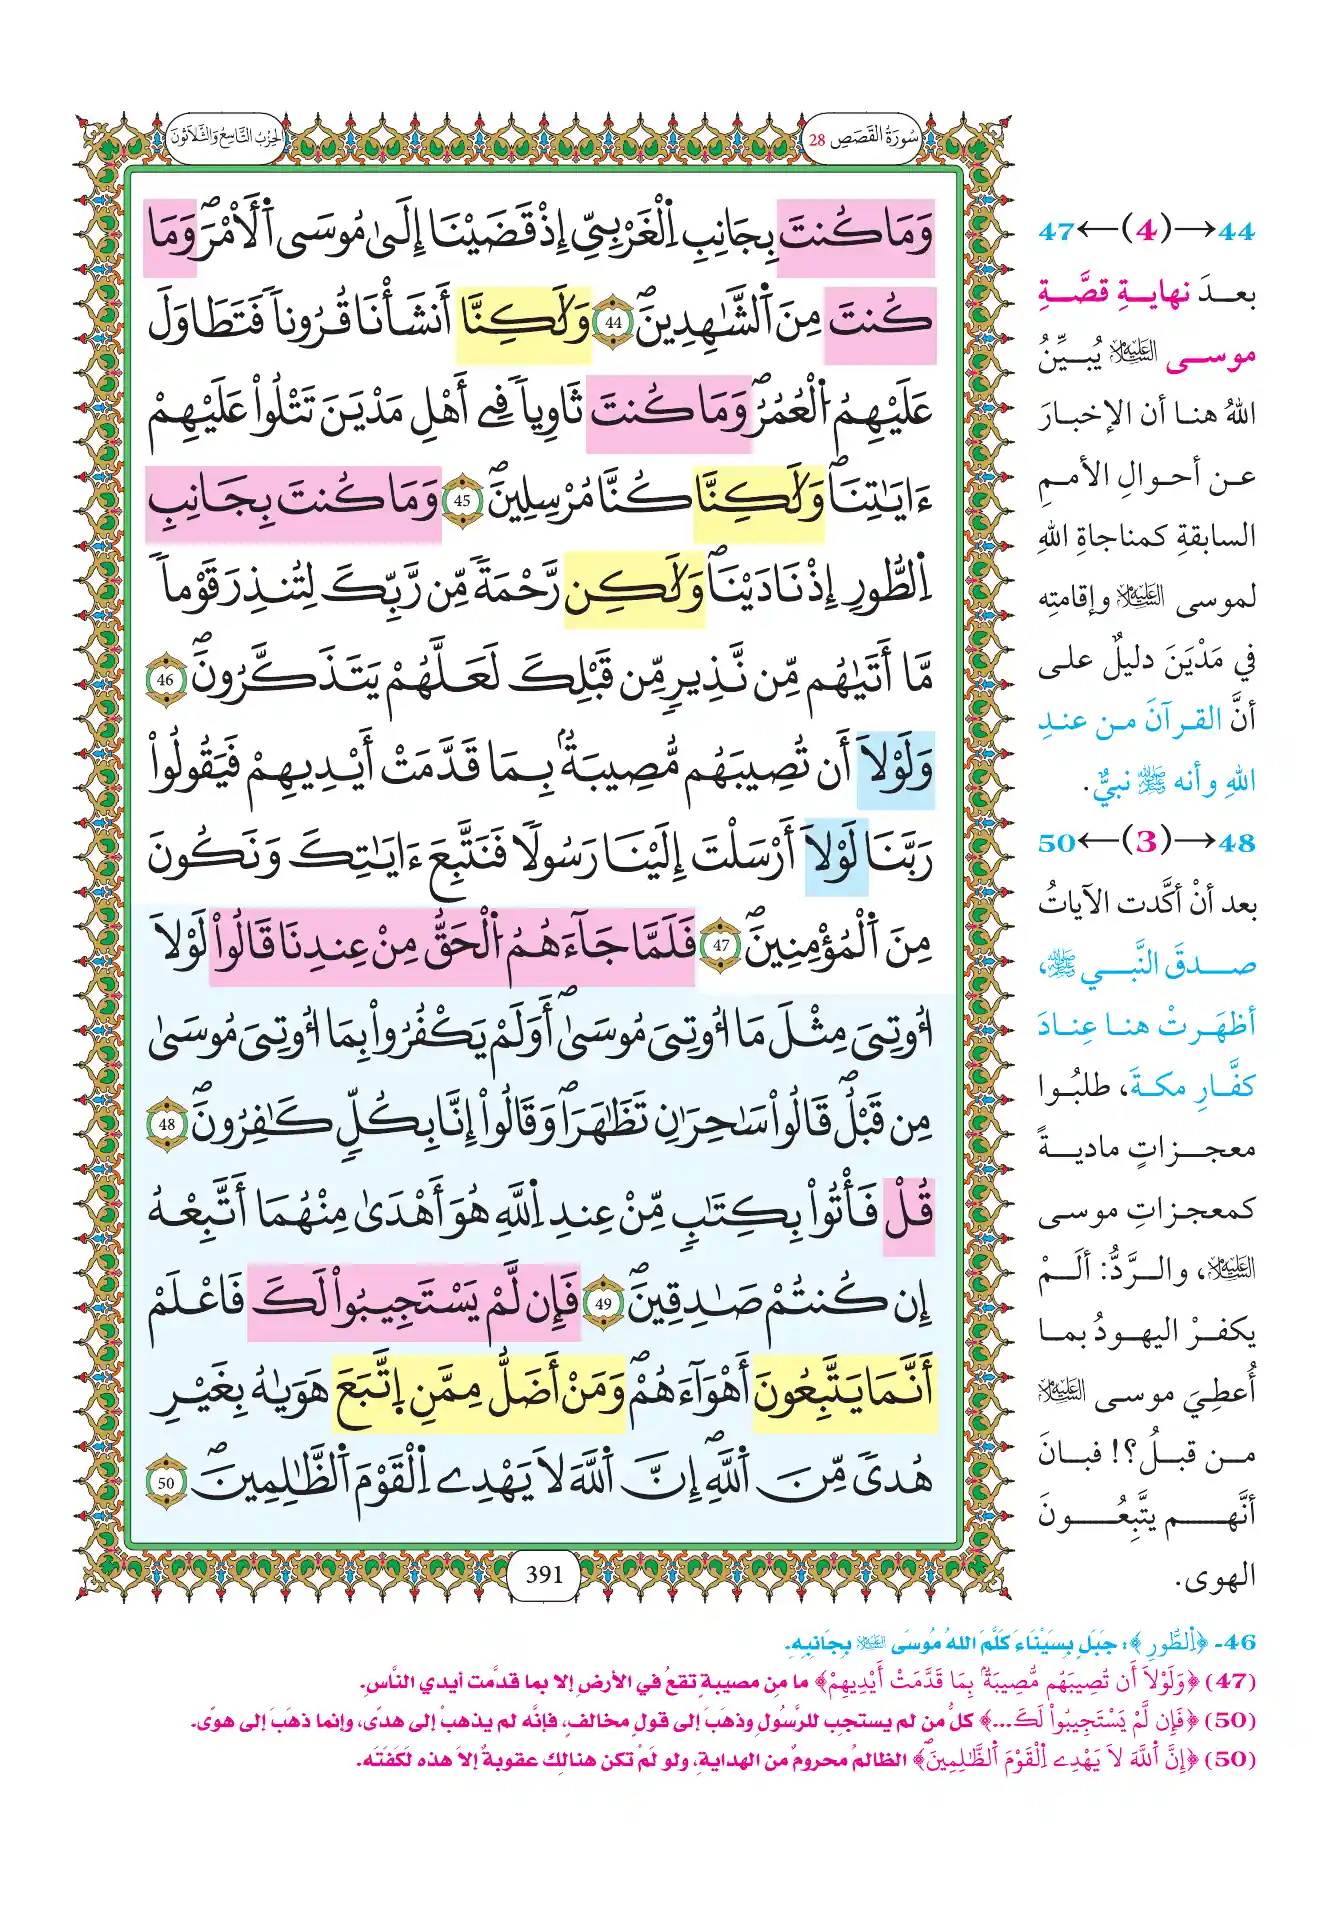 سُورَةُ القَصَصِ 28
الحِزْبُ التَّاسِعُ وَالثَّلَاثُونَ
وَمَا كُنتَ بِجَانِبِ اِ۬لْغَرْبِيِّ إِذْ قَضَيْنَا إِلَىٰ مُوسَى اَ۬لَامْرَۖ وَمَا
كُنتَ مِنَ اَ۬لشَّٰهِدِينَۖ 44 وَلَٰكِنَّا أَنشَأْنَا قُرُوناٗ فَتَطَاوَلَ
عَلَيْهِمُ اُ۬لْعُمُرُۖ وَمَا كُنتَ ثَاوِياٗ فِے أَهْلِ مَدْيَنَ تَتْلُواْ عَلَيْهِمْ
ءَايَٰتِنَاۖ وَلَٰكِنَّا كُنَّا مُرْسِلِينَۖ 45 وَمَا كُنتَ بِجَانِبِ
اِ۬لطُّورِ إِذْ نَادَيْنَاۖ وَلَٰكِن رَّحْمَةٗ مِّن رَّبِّكَ لِتُنذِرَ قَوْماٗ
مَّا أَتَىٰهُم مِّن نَّذِيرٖ مِّن قَبْلِكَ لَعَلَّهُمْ يَتَذَكَّرُونَۖ 46
وَلَوْلَا أَن تُصِيبَهُم مُّصِيبَةُۢ بِمَا قَدَّمَتْ أَيْدِيهِمْ فَيَقُولُواْ
رَبَّنَا لَوْلَا أَرْسَلْتَ إِلَيْنَا رَسُولاٗ فَنَتَّبِعَ ءَايَٰتِكَ وَنَكُونَ
مِنَ اَ۬لْمُؤْمِنِينَۖ 47 فَلَمَّا جَآءَهُمُ اُ۬لْحَقُّ مِنْ عِندِنَا قَالُواْ لَوْلَا
أُوتِيَ مِثْلَ مَا أُوتِيَ مُوسَىٰۖ أَوَلَمْ يَكْفُرُواْ بِمَا أُوتِيَ مُوسَىٰ
مِن قَبْلُۖ قَالُواْ سَٰحِرَٰنِ تَظَٰهَرَاۖ وَقَالُواْ إِنَّا بِكُلّٖ كَٰفِرُونَۖ 48
قُلْ فَأْتُواْ بِكِتَٰبٖ مِّنْ عِندِ اِ۬للَّهِ هُوَ أَهْدَىٰ مِنْهُمَا أَتَّبِعْهُ
إِن كُنتُمْ صَٰدِقِينَۖ 49 فَإِن لَّمْ يَسْتَجِيبُواْ لَكَ فَاعْلَمْ
أَنَّمَا يَتَّبِعُونَ أَهْوَآءَهُمْۖ وَمَنْ أَضَلُّ مِمَّنِ اِ۪تَّبَعَ هَوَىٰهُ بِغَيْرِ
هُدىٗ مِّنَ اَ۬للَّهِۖ إِنَّ اَ۬للَّهَ لَا يَهْدِے اِ۬لْقَوْمَ اَ۬لظَّٰلِمِينَۖ 50
391
44→(4)←47
بعدَ نهايةِ قصَّةِ
موسى عليه السلام يُبيِّنُ
اللهُ هنا أن الإخبارَ
عن أحوالِ الأممِ
السابقةِ كمناجاةِ اللهِ
لموسى عليه السلام وإقامتِه
في مَدْيَنَ دليلٌ على
أنَّ القرآنَ من عندِ
اللهِ وأنه ﷺ نبيٌّ.
48→(3)←50
بعد أنْ أكَّدت الآياتُ
صدقَ النَّبي ﷺ،
أظهَرتْ هنا عِنادَ
كفَّارِ مكةَ، طلبُوا
معجزاتٍ ماديةً
كمعجزاتِ موسى
عليه السلام، والرَّدُّ: ألَمْ
يكفرْ اليهودُ بما
أُعطِيَ موسى عليه السلام
من قبلُ؟! فبانَ
أنَّهم يتَّبِعُونَ
الهوى.
46- ﴿اِ۬لطُّورِ﴾: جَبَلٍ بِسَيْنَاءَ كَلَّمَ اللهُ مُوسَى عليه السلام بِجَانِبِهِ.
(47) ﴿وَلَوْلَا أَن تُصِيبَهُم مُّصِيبَةُۢ بِمَا قَدَّمَتْ أَيْدِيهِمْ﴾ ما مِن مصيبةٍ تقعُ في الأرضِ إلا بما قدَّمت أيدي النَّاسِ.
(50) ﴿فَإِن لَّمْ يَسْتَجِيبُواْ لَكَ...﴾ كلُّ من لم يستجب للرَّسُولِ وذهَبَ إلى قولٍ مخالفٍ، فإنَّه لم يذهبْ إلى هدًى، وإنما ذهَبَ إلى هوًى.
(50) ﴿إِنَّ اَ۬للَّهَ لَا يَهْدِے اِ۬لْقَوْمَ اَ۬لظَّٰلِمِينَۖ﴾ الظالمُ محرومٌ من الهدايةِ، ولو لَمْ تكن هنالِكَ عقوبةٌ إلا هذه لكَفَتْه.